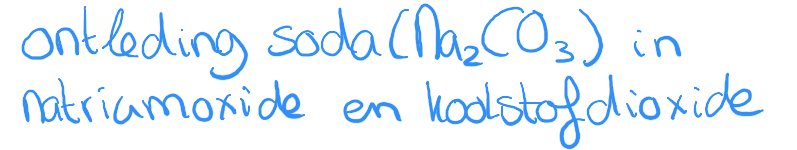 ontleding soda (Na₂CO₃) in
natriumoxide en koolstofdioxide